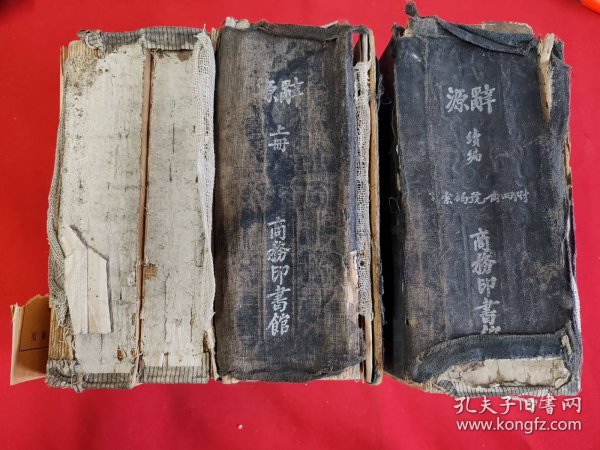 辭源
上冊
商務印書館
辭源
續編
附四角號碼索
商務印書館
孔夫子旧书网
www.kongfz.com